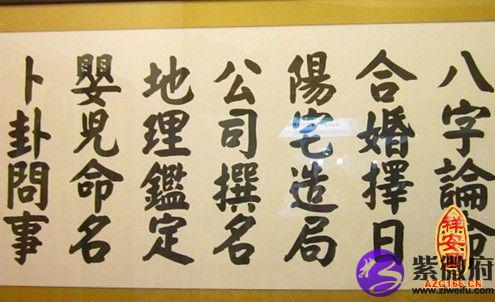 八字論命
合婚擇日
陽宅造局
公司撰名
地理鑑定
嬰兒命名
卜卦問事
祥安
紫微府
www.ziweifu.com
AZG168.CN